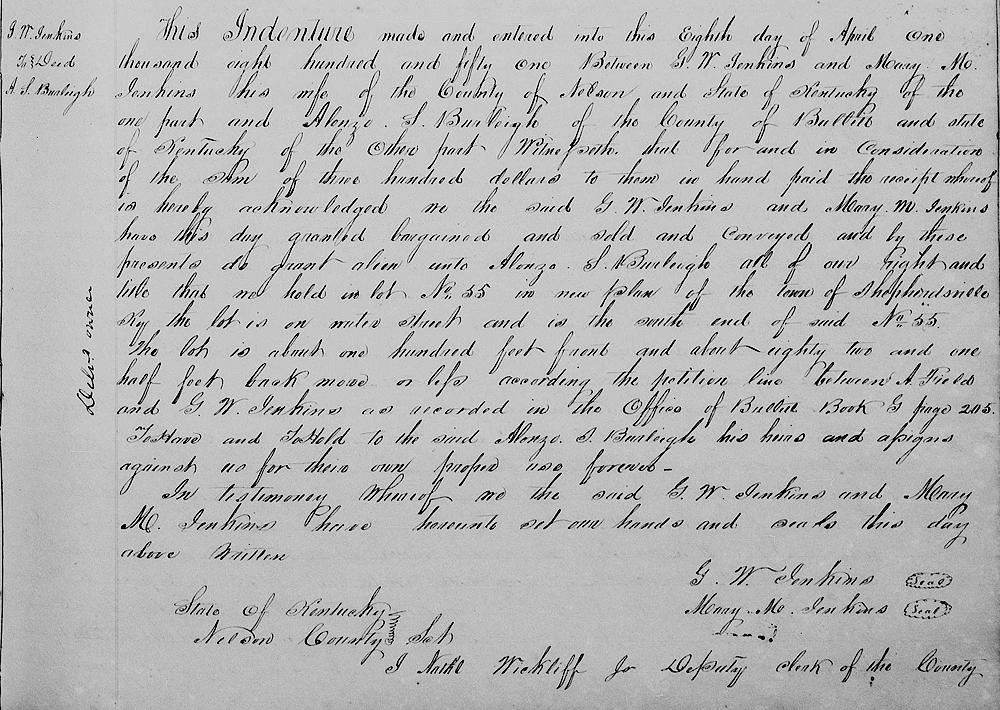 G. W. Jenkins
To } Deed
A. S. Burleigh
This Indenture made and entered into this Eighth day of April One
thousand eight hundred and fifty one Between G. W. Jenkins and Mary. M.
Jenkins his wife of the County of Nelson and State of Kentucky of the
one part and Alonzo. S. Burleigh of the County of Bullitt and state
of Kentucky of the Other part Witnesseth. that for and in Consideration
of the Sum of three hundred dollars to them in hand paid the receipt whereof
is hereby acknowledged we the said G. W. Jenkins and Mary. M. Jenkins
have this day granted bargained and sold and Conveyed and by these
presents do grant alien unto Alonzo. S. Burleigh all of our Right and
title that we hold in lot No. 55 in new plan of the town of Shepherdsville
Ky the lot is on water street and is the south end of said No. 55.
The lot is about one hundred feet front and about eighty two and one
half feet back more or less according the petition line between A. Field
and G. W. Jenkins as recorded in the Office of Bullitt Book G page 205.
To Have and To Hold to the said Alonzo. S. Burleigh his heirs and assigns
against us for their own proper use forever -
In testimoney Whereof we the said G. W. Jenkins and Mary
M. Jenkins have hereunto set our hands and seals this day
above Written
G. W. Jenkins (Seal)
Mary. M. Jenkins (Seal)
State Of Kentucky }
Nelson County } Sct
I Nathl Wickliff Jr Deputy clerk of the County
Delvd owner